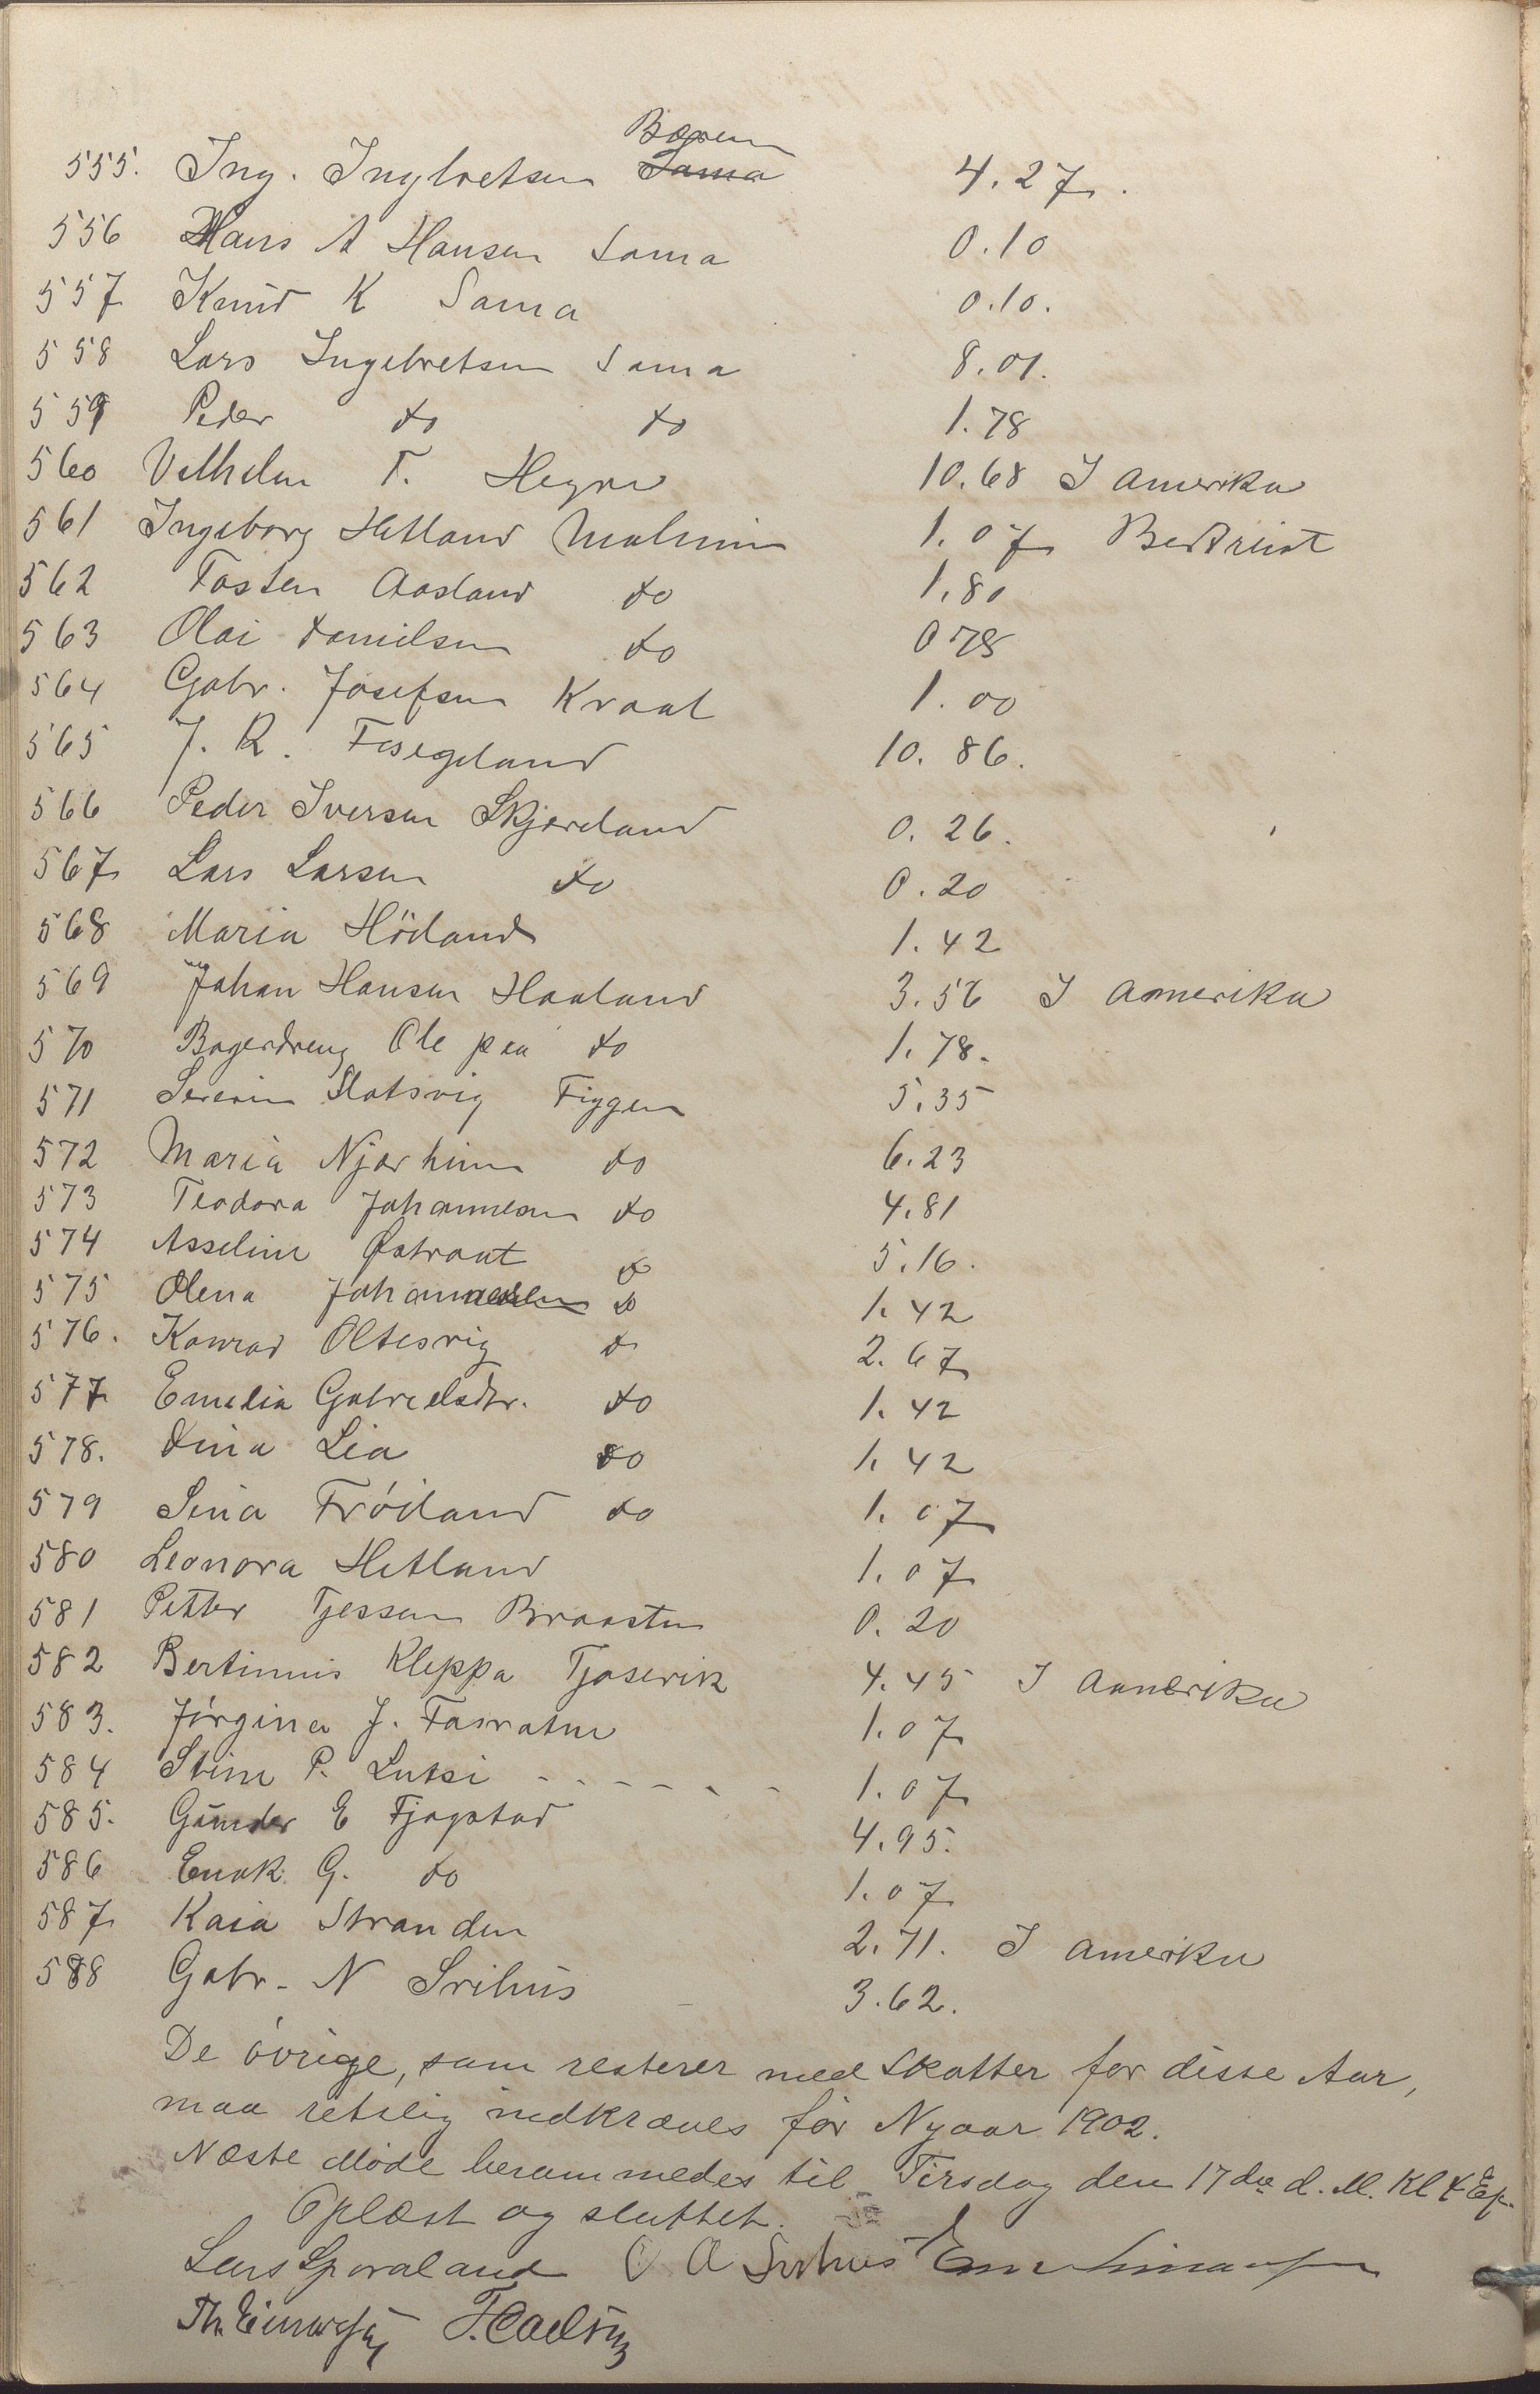 Boren
555. Ing. Ingbretsen Soma 4.27.
556 Hans A Hansen Soma 0.10
557 Knud K Soma 0.10.
558 Lars Ingebretsen Soma 8.01.
559 Peder do do 1.78
560 Vilhelm T. Hegre 10.68 I Amerika
561 Ingeborg Hetland Malmin 1.07
562 Tosten Aasland do 1.80
563 Olai Danielsen do 0 78
564 Gabr. Josefsen Kraal 1.00
565 J. R. 10.86.
566 Peder Iversen Skjæveland 0.26.
567 Lars Larsen do 0.20
568 Maria Höiland 1.42
569 Johan Hansen Haaland 3.56 I Amerika
570 Bagerdreng Ole paa do 1.78.
571 Severin Slotsvig Figgen 5.35
572 Maria Njærheim do 6.23
573 Teodora Johannesen do 4.81
574 Asseline Østraat do 5.16.
575 Olena Johannessen do 1.42
576. Konrad Oltesvig do 2.67
577 Emelia Gabrielsdtr. do 1.42
578. Dina Lia do 1.42
579 Sina Fröiland do 1.07
580 Leonora Hetland 1.07
581 Petter Tjessem Braasten 0.20
582 Bertinius Kleppa Tjosevik 4.45 I Amerika
583. Jörgina J. Fosvatne 1.07
584 Stine P. Lutsi - - - - - - 1.07
585. Gunder E Fjogstad 4.95.
586 Enok G. do 1.07
587 Kaia Stranden 2.71. I Amerika
588 Gabr. N Svihus 3.62.
De övrige, som resterer med Skatter for disse Aar,
maa retslig indkræves før Nyaar 1902.
Næste Møde berammedes til Tirsdag den 17de d. M. Kl 4 Ef.
Oplæst og sluttet.
Lars Sporaland O A Svihus